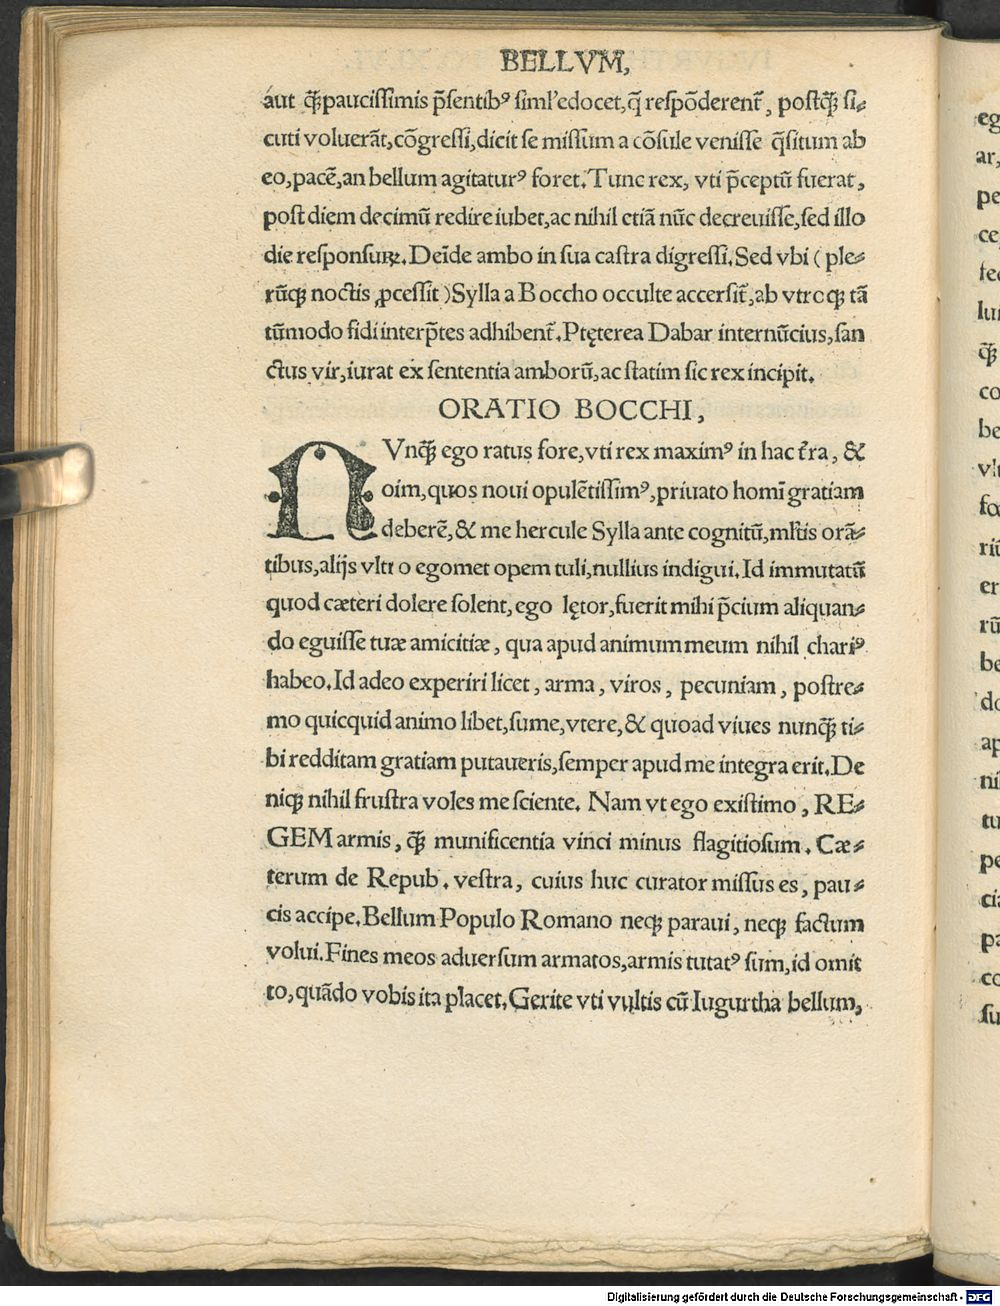 BELLVM,
aut q̃ꝫ paucissimis p̃sentibꝰ siml'edocet, q̃ respõderent̃, postq̃ꝫ si⸗
cuti voluerãt, cõgressi, dicit se missum a cõsule venisse q̃situm ab
eo, pacẽ, an bellum agitaturꝰ foret. Tunc rex, vti p̃ceptũ fuerat,
post diem decimũ redire iubet, ac nihil etiã nũc decreuisse, sed illo
die responsuꝝ. Deĩde ambo in sua castra digressi. Sed vbi (ple⸗
rũqꝫ noctis ꝓcessit) Sylla a Boccho occulte accersit̃, ab vtroqꝫ tã
tũmodo fidi interp̃tes adhibent̃. Ptęterea Dabar internũcius, san
ctus vir, iurat ex sententia amborũ, ac statim sic rex incipit.
ORATIO BOCCHI,
NVnq̃ꝫ ego ratus fore, vti rex maximꝰ in hac t̃ra, &
oim, quos noui opulẽtissimꝰ, priuato homĩ gratiam
deberẽ, & me hercule Sylla ante cognitũ, mƚtis orã⸗
tibus, alijs vltro egomet opem tuli, nullius indigui. Id immutatũ
quod cæteri dolere solent, ego lętor, fuerit mihi p̃cium aliquan⸗
do eguisse tuæ amicitiæ, qua apud animum meum nihil chariꝰ
habeo. Id adeo experiri licet, arma, viros, pecuniam, postre⸗
mo quicquid animo libet, sume, vtere, & quoad viues nunq̃ꝫ ti⸗
bi redditam gratiam putaueris, semper apud me integra erit. De
niqꝫ nihil frustra voles me sciente. Nam vt ego existimo, RE⸗
GEM armis, q̃ꝫ munificentia vinci minus flagitiosum. Cæ⸗
terum de Repub. vestra, cuius huc curator missus es, pau⸗
cis accipe. Bellum Populo Romano neqꝫ paraui, neqꝫ factum
volui. Fines meos aduersum armatos, armis tutatꝰ sum, id omit
to, quãdo vobis ita placet. Gerite vti vultis cũ Iugurtha bellum,
Digitalisierung gefördert durch die Deutsche Forschungsgemeinschaft - DFG